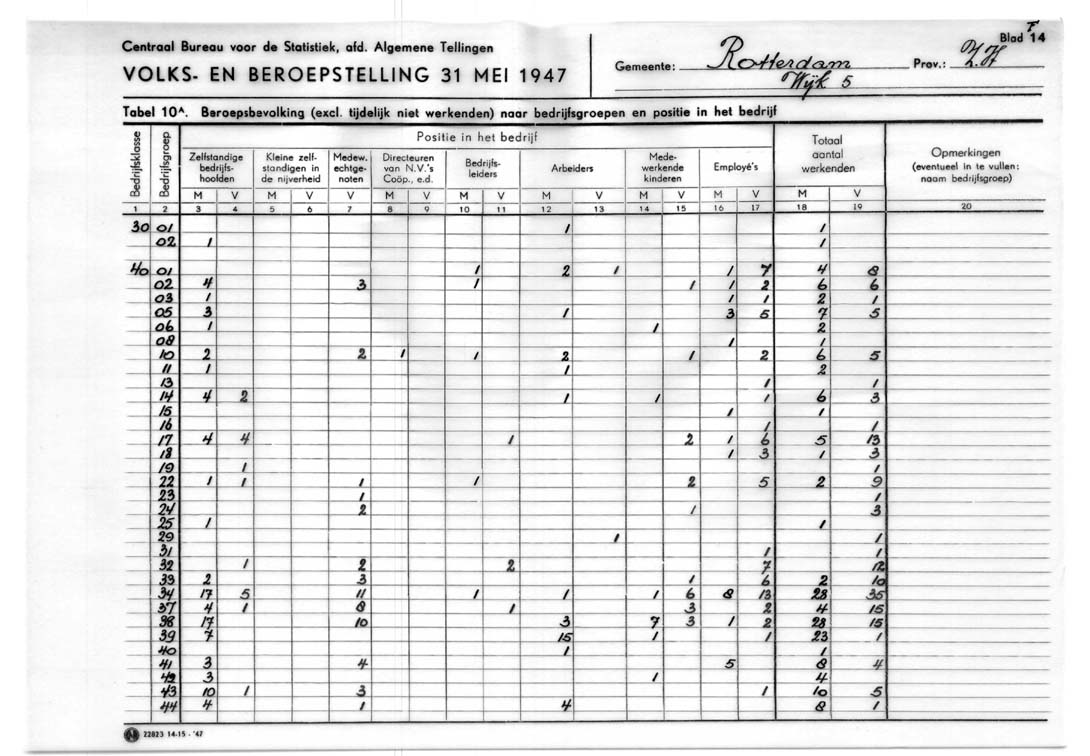 F
Blad 14
Centraal Bureau voor de Statistiek, afd. Algemene Tellingen
VOLKS- EN BEROEPSTELLING 31 MEI 1947
Gemeente: Rotterdam Prov.: Z.H
Wijk 5
Tabel 10A. Beroepsbevolking (excl. tijdelijk niet werkenden) naar bedrijfsgroepen en positie in het bedrijf
Bedrijfsklasse
Bedrijfsgroep
Positie in het bedrijf
Zelfstandige bedrijfs-hoolden
Kleine zelf-standigen in de nijverheid
Medew. echtge-noten
Directeuren van N.V.'s Coöp., e.d.
Bedrijfs-leiders
Arbeiders
Mede-werkende kinderen
Employé's
Totaal aantal werkenden
Opmerkingen (eventueel in te vullen: naam bedrijfsgroep)
M V M V V M V M V M V M V M V M V
1 2 3 4 5 6 7 8 9 10 11 12 13 14 15 16 17 18 19 20
30 01 1 1
02 1 1
40 01 1 2 1 1 7 4 8
02 4 3 1 1 1 2 6 6
03 1 1 1 2 1
05 3 1 3 5 7 5
06 1 1 2
08 1 1
10 2 2 1 1 2 1 2 6 5
11 1 1 2
13 1 1
14 4 2 1 1 1 6 3
15 1 1
16 1 1
17 4 4 1 2 1 6 5 13
18 1 3 1 3
19 1 1
22 1 1 1 1 2 5 2 9
23 1 1
24 2 1 3
25 1 1
29 1 1
31 1 1
32 1 2 2 7 12
33 2 3 1 6 2 10
34 17 5 11 1 1 1 6 8 13 28 35
37 4 1 8 1 3 2 4 15
38 17 10 3 7 3 1 2 28 15
39 7 15 1 1 23 1
40 1 1
41 3 4 5 8 4
42 3 1 4
43 10 1 3 1 10 5
44 4 1 4 8 1
22823 14-15 - '47